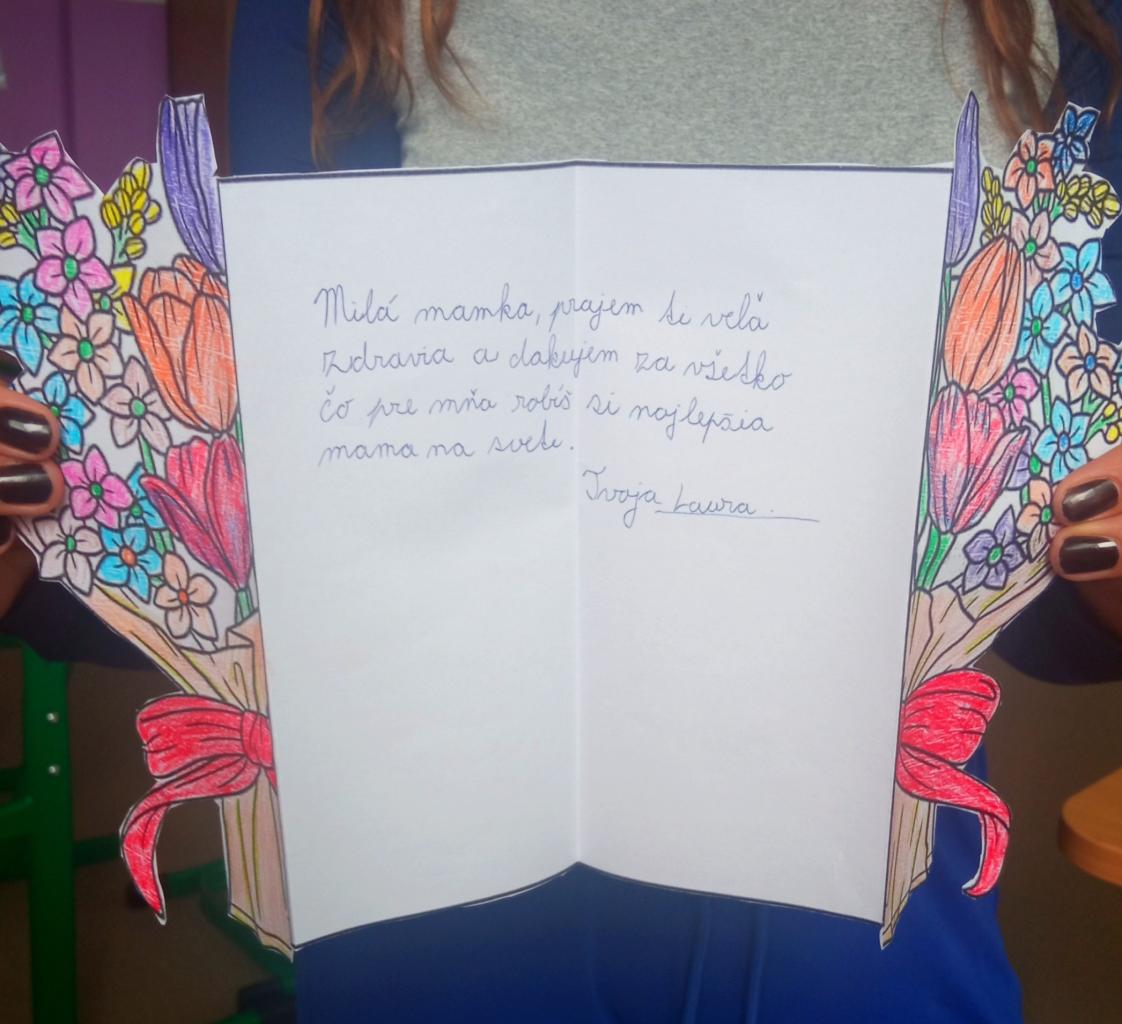 Milá mamka, prajem ti velă
zdravia a dakujem za všetko
čo pre mňa robíš si najlepšia
mama na svete.
Tvoja Laura.